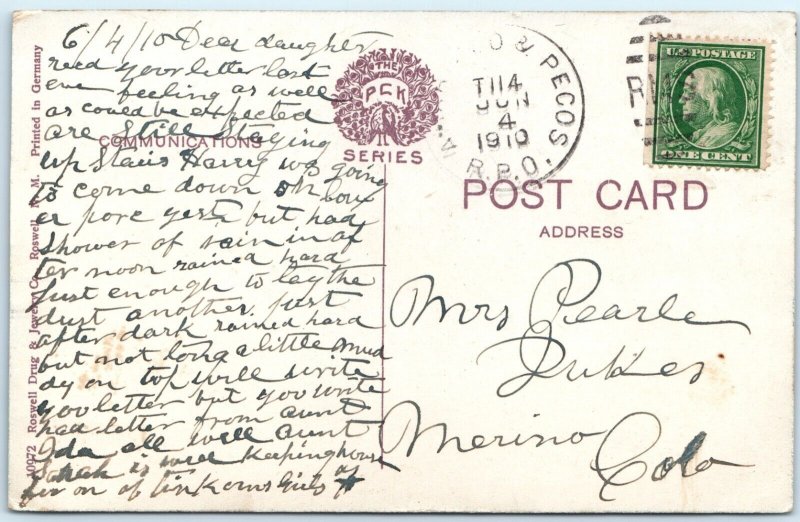 6/4/10 Dear daughter
recd your letter last
eve feeling as well
as could be expected
are still staying
up stairs Harry was going
to come down on
yest but had
shower of rain in af
ter noon rained hard
Just enough to lay the
dust another just
after dark rained hard
but not long a little mud
dy on top will write
you letter but you write
had letter from aunt
Ida all well aunt
Sarah is well keeping house
for on of
COMMUNICATIONS
THE
PCK
SERIES
& PECOS
T114
JUN
4
1910
R.P.O.
RMS
U.S. POSTAGE
ONE CENT
POST CARD
ADDRESS
Mrs Pearle
Dukes
Merino
Colo
10972 Roswell Drug & Jewelry Co., Roswell, N. M. Printed in Germany